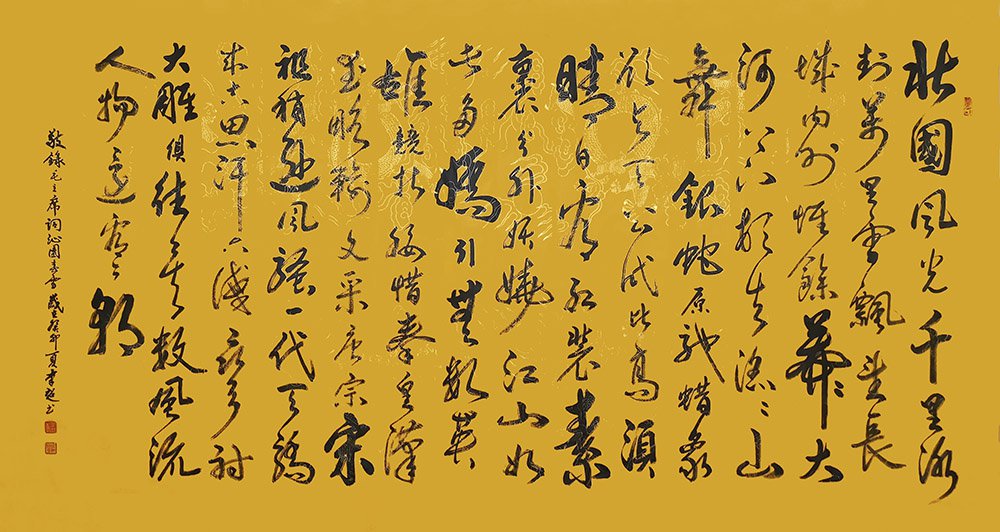 北國風光千里冰
封萬里雪飄望長
城內外惟餘莽〻大
河上下頓失滔〻山
舞銀蛇原馳蠟象
欲與天公試比高須
晴日看紅裝素
裹分外妖嬈江山如
此多嬌引無數英
雄競折腰惜秦皇漢
武略輸文采唐宗宋
祖稍遜風騷一代天驕
成吉思汗只識彎弓射
大雕俱往矣數風流
人物還看今朝
敬錄毛主席詞沁園春雪 歲在癸卯夏李 書